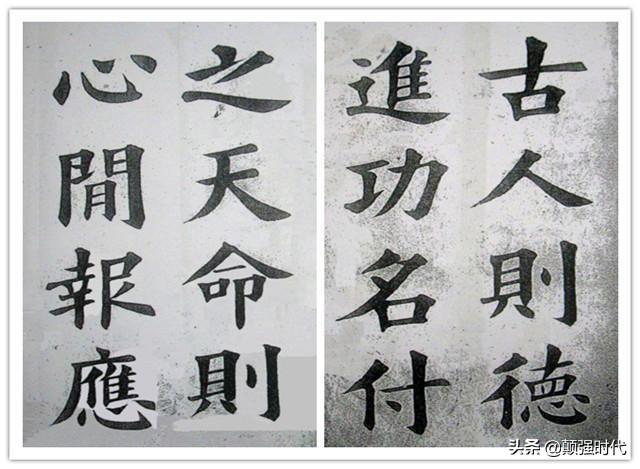 古人則德
進功名付
之天命則
心閒報應
头条 @颠强时代